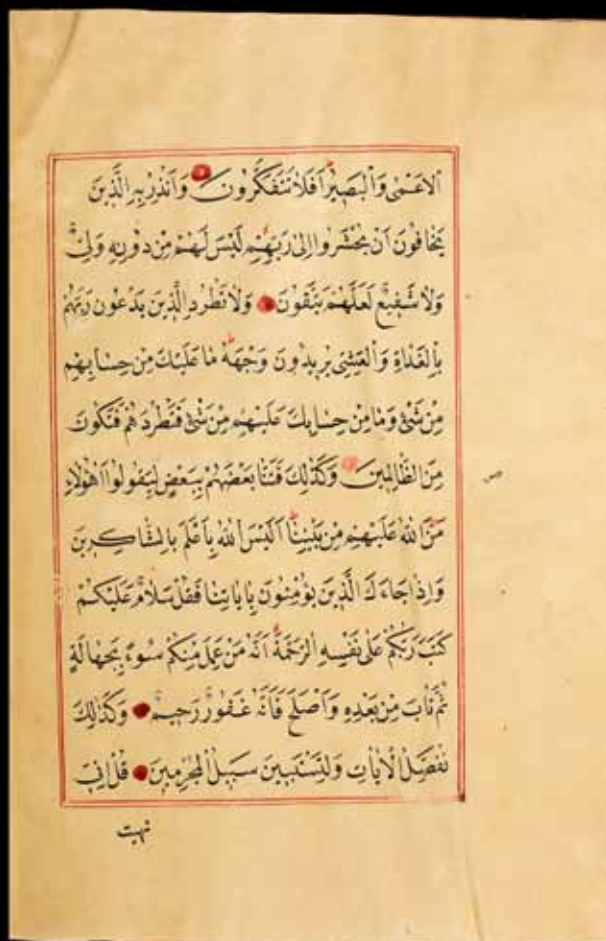 الْاَعْمٰى وَالْبَصٖيرُ اَفَلَا تَتَفَكَّرُونَ وَاَنْذِرْ بِهِ الَّذٖينَ
يَخَافُونَ اَنْ يُحْشَرُوا اِلٰى رَبِّهِمْ لَيْسَ لَهُمْ مِنْ دُونِهٖ وَلِىٌّ
وَلَا شَفٖيعٌ لَعَلَّهُمْ يَتَّقُونَ وَلَا تَطْرُدِ الَّذٖينَ يَدْعُونَ رَبَّهُمْ
بِالْغَدَاةِ وَالْعَشِىِّ يُرٖيدُونَ وَجْهَهُ مَا عَلَيْكَ مِنْ حِسَابِهِمْ
مِنْ شَىْءٍ وَمَا مِنْ حِسَابِكَ عَلَيْهِمْ مِنْ شَىْءٍ فَتَطْرُدَهُمْ فَتَكُونَ
مِنَ الظَّالِمٖينَ وَكَذٰلِكَ فَتَنَّا بَعْضَهُمْ بِبَعْضٍ لِيَقُولُوا اَهٰؤُلَاءِ
مَنَّ اللّٰهُ عَلَيْهِمْ مِنْ بَيْنِنَا اَلَيْسَ اللّٰهُ بِاَعْلَمَ بِالشَّاكِرٖينَ
وَاِذَا جَاءَكَ الَّذٖينَ يُؤْمِنُونَ بِاٰيَاتِنَا فَقُلْ سَلَامٌ عَلَيْكُمْ
كَتَبَ رَبُّكُمْ عَلٰى نَفْسِهِ الرَّحْمَةَ اَنَّهُ مَنْ عَمِلَ مِنْكُمْ سُوءًا بِجَهَالَةٍ
ثُمَّ تَابَ مِنْ بَعْدِهٖ وَاَصْلَحَ فَاَنَّهُ غَفُورٌ رَحٖيمٌ وَكَذٰلِكَ
نُفَصِّلُ الْاٰيَاتِ وَلِتَسْتَبٖينَ سَبٖيلُ الْمُجْرِمٖينَ قُلْ اِنّٖى
نهيت